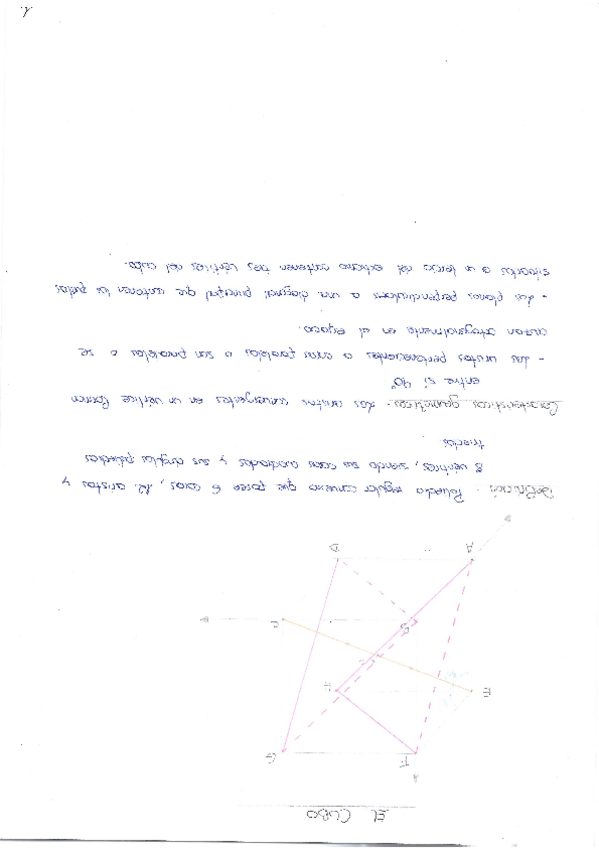 EL CUBO
F
G
E
H
B
C
A
D
Definición - Poliedro regular convexo que posee 6 caras, 12 aristas y
8 vértices, siendo sus caras cuadrados y sus ángulos poliedros
triedros.
Características geométricas - Las aristas convergentes en un vértice forman
entre si 90º
- Las aristas pertenecientes a caras paralelas o son paralelas o se
cruzan ortogonalmente en el espacio.
- Los planos perpendiculares a una diagonal principal que contienen los puntos
situados a un tercio del extremo contienen tres vértices del cubo.
1.